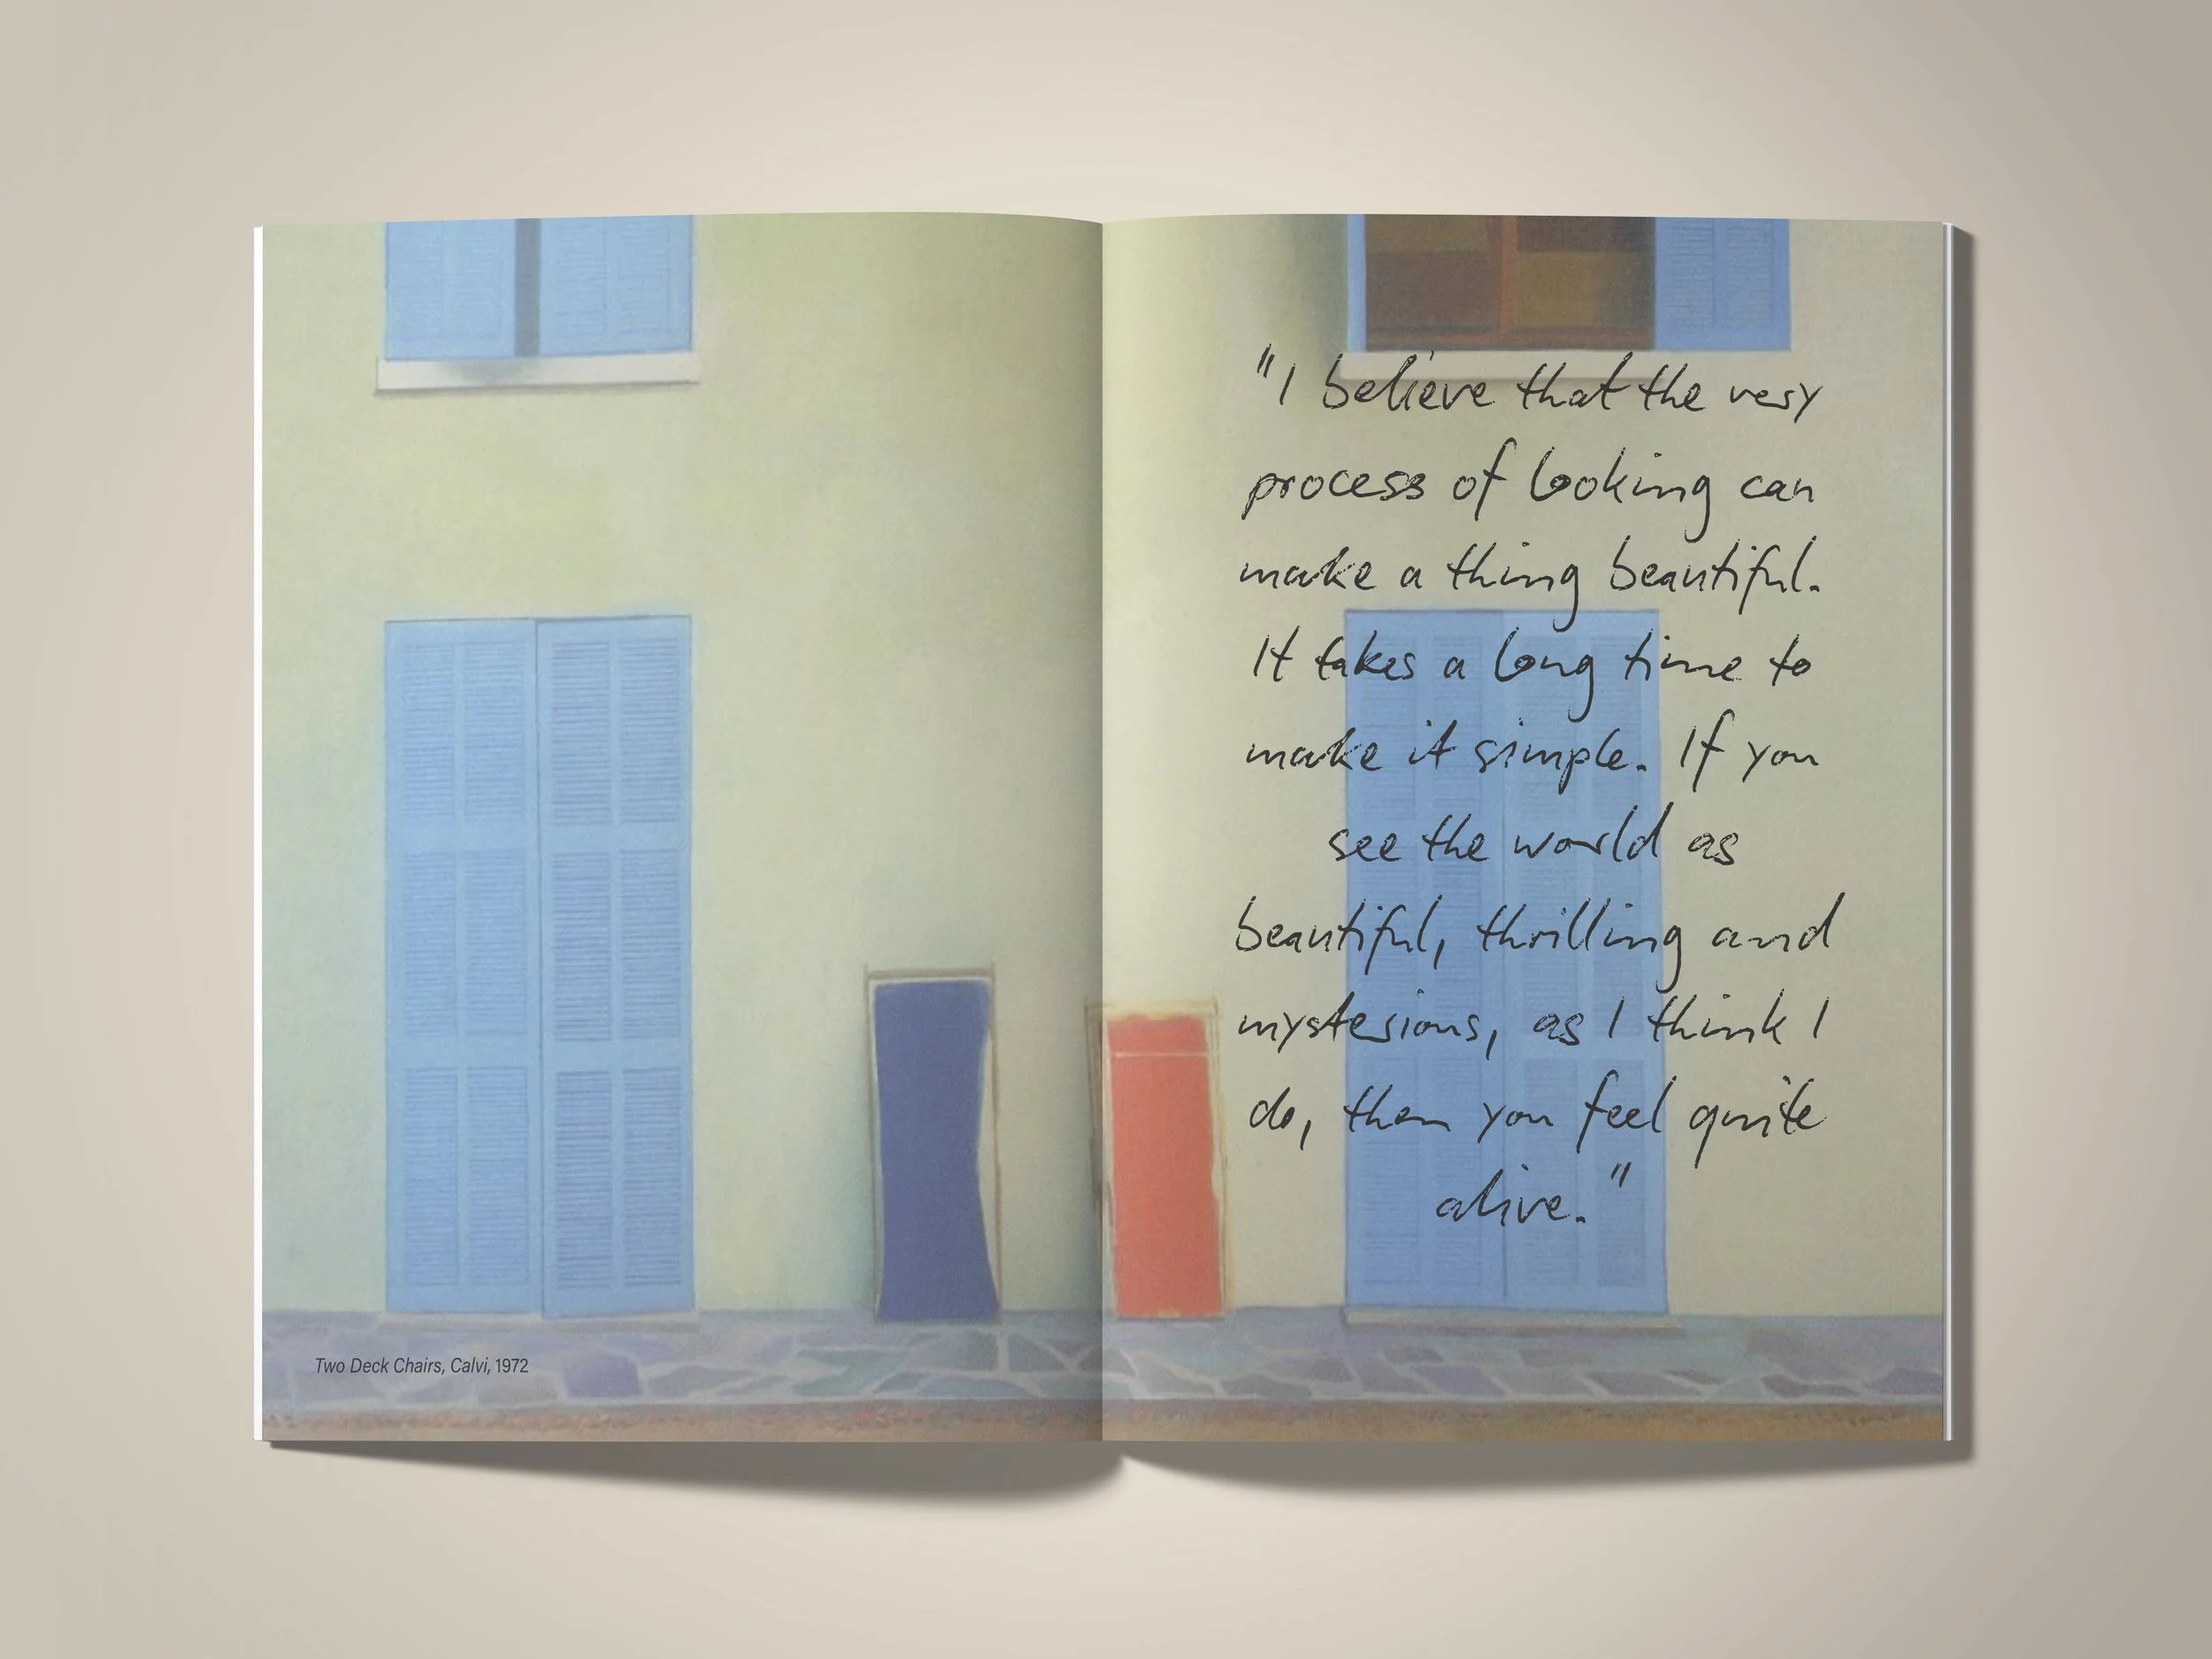 Two Deck Chairs, Calvi, 1972
"I believe that the very
process of looking can
make a thing beautiful.
It takes a long time to
make it simple. If you
see the world as
beautiful, thrilling and
mysterious, as I think I
do, then you feel quite
alive."